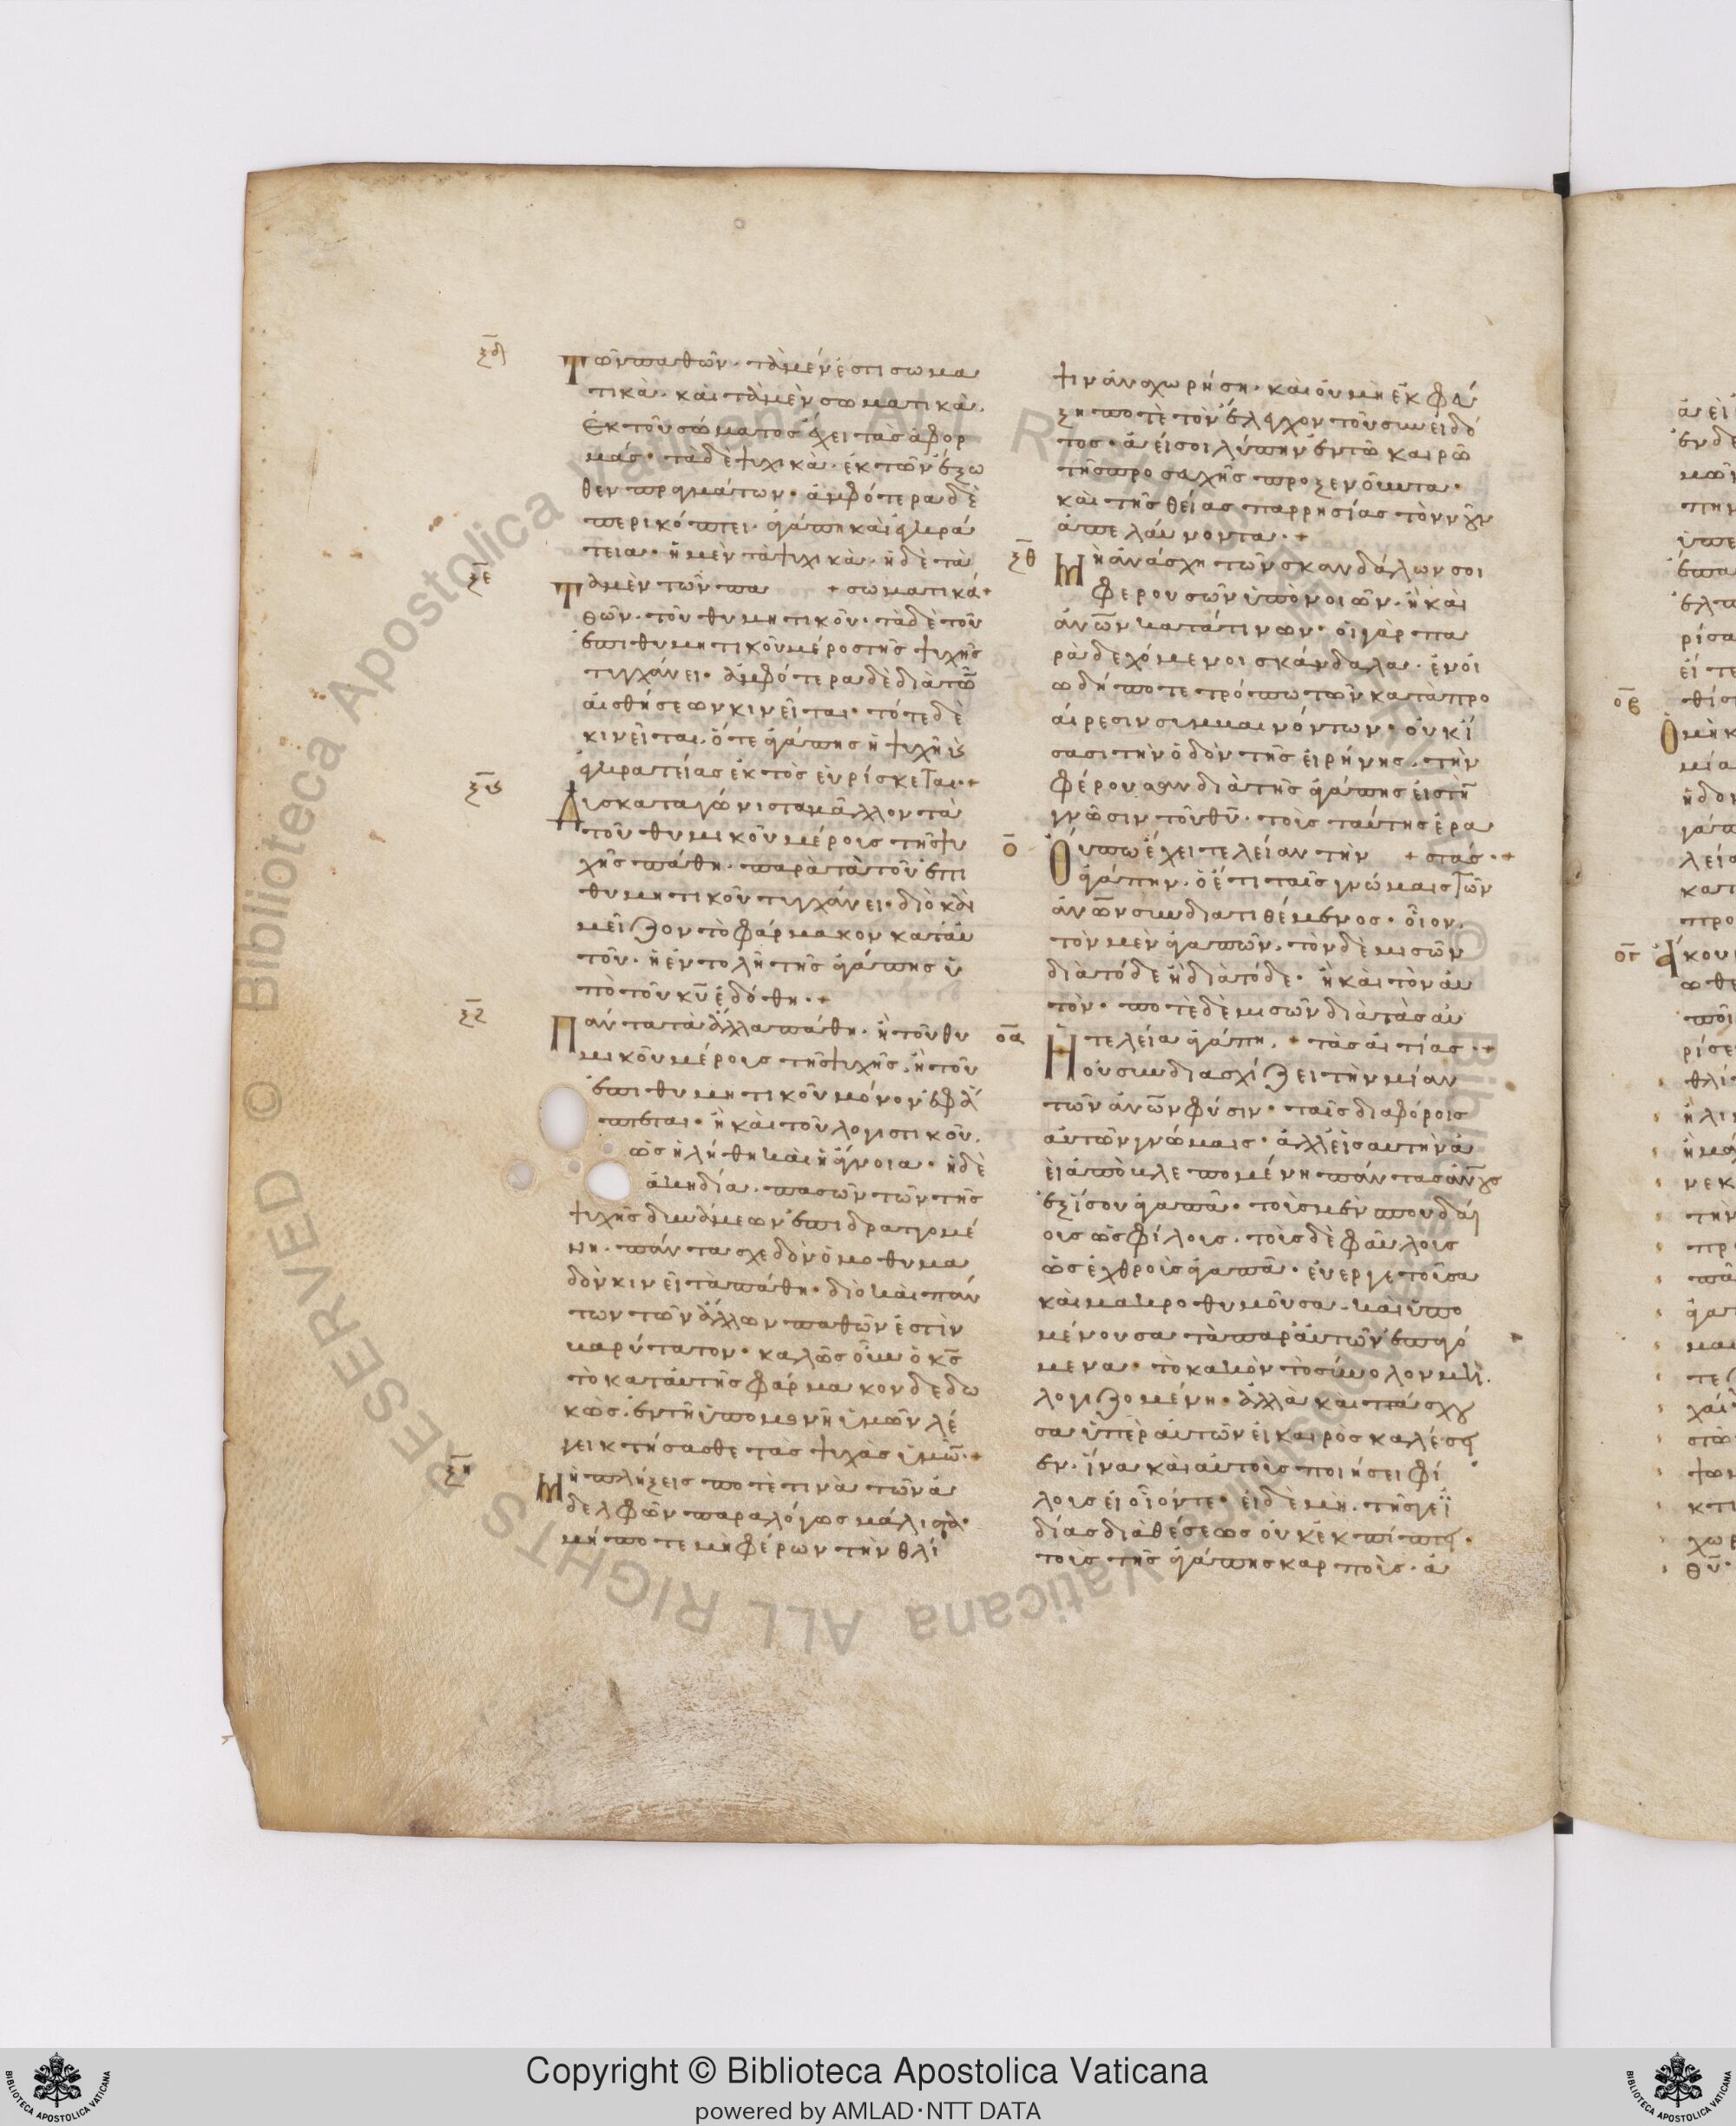 ξδ
Τῶν παθῶν· τὰ μέν ἐστι σωμα
τικὰ· καὶ τὰ μὲν σωματικὰ·
ἐκ τοῦ σώματος ἔχει τὰς ἀφορ
μάς· τὰ δὲ ψυχικὰ· ἐκ τῶν ἔξω
θεν πραγμάτων· ἀμφότερα δὲ
περικόπτει· ἀγάπη καὶ ἐγκρά
τεια· ἡ μὲν τὰ ψυχικὰ· ἡ δὲ τὰ
+ σωματικά +
ξε
Τὰ μὲν τῶν πα
θῶν· τοῦ θυμητικοῦ· τὰ δὲ τοῦ
ἐπιθυμητικοῦ μέρος τῆς ψυχῆς
τυγχάνει· ἀμφότερα δὲ διὰ τῶν
αἰσθήσεων κινεῖται· τότε δὲ
κινεῖται· ὅτε ἀγάπης ἡ ψυχὴ καὶ
ἐγκρατείας ἐκτὸς εὑρίσκεται +
ξϛ
Δυσκαταγώνιστα μᾶλλον τὰ
τοῦ θυμικοῦ μέρους τῆς ψυ
χῆς πάθη· παρὰ τὰ τοῦ ἐπι
θυμητικοῦ τυγχάνει· διὸ καὶ
μεῖζον τὸ φάρμακον κατ αὐ
τοῦ· ἡ ἐντολὴ τῆς ἀγάπης ὑ
πὸ τοῦ κυ ἐδόθη +
ξζ
Πάντα τὰ ἄλλα πάθη· ἢ τοῦ θυ
μικοῦ μέρους τῆς ψυχῆς· ἢ τοῦ
ἐπιθυμητικοῦ μόνον ἐφά
πτεται· ἢ καὶ τοῦ λογιστικοῦ·
ὡς ἡ λήθη καὶ ἡ ἄγνοια· ἡ δὲ
ἀκηδία· πασῶν τῶν τῆς
ψυχῆς δυνάμεων ἐπιδρασσομέ
νη· πάντα σχεδὸν ὁμοθυμα
δὸν κινεῖ τὰ πάθη· διὸ καὶ πάν
των τῶν ἄλλων παθῶν ἐστὶν
βαρύτατον· καλῶς οὖν ὁ κς
τὸ κατ αὐτῆς φάρμακον δεδω
κὼς· ἐν τῇ ὑπομονῇ ὑμῶν λέ
γει κτήσασθε τὰς ψυχὰς ὑμῶν +
ξη
Μὴ πλήξεις ποτὲ τινὰ τῶν ἀ
δελφῶν παραλόγως μάλιστα·
μήποτε μὴ φέρων τὴν θλί
ψιν ἀναχωρήσῃ· καὶ οὐ μὴ ἐκφύ
ξῃ ποτὲ τὸν ἔλεγχον τοῦ συνειδό
τος· ἀεί σοι λύπην ἐν τῷ καιρῷ
τῆς προσευχῆς προξενοῦντα·
καὶ τῆς θείας παρρησίας τὸν νοῦν
ἀπελαύνοντα +
ξθ
Μὴ ἀνάσχῃ τῶν σκανδάλων σοι
φερουσῶν ὑπονοιῶν· ἢ καὶ
ἀνων κατά τινων· οἱ γὰρ πα
ραδεχόμενοι σκάνδαλα· ἐν οἱ
ῳδήποτε τρόπῳ τῶν κατὰ προ
αίρεσιν συμβαινόντων· οὐκ ἴ
σασι τὴν ὁδὸν τῆς εἰρήνης· τὴν
φέρουσαν διὰ τῆς ἀγάπης εἰς τὴν
γνῶσιν τοῦ θυ· τοὺς ταύτης ἐρα
+ στάς +
ο
Οὔπω ἔχει τελείαν τὴν
ἀγάπην· ὁ ἔτι ταῖς γνώμαις τῶν
ἀνων συνδιατιθέμενος· οἷον
τὸν μὲν ἀγαπῶν· τὸν δὲ μισῶν
διὰ τόδε ἢ διὰ τόδε· ἢ καὶ τὸν αὐ
τὸν· ποτὲ δὲ μισῶν διὰ τὰς αὐ
+ τὰς αἰτίας +
οα
Ἡ τελεία ἀγάπη
οὐ συνδιασχίζει τὴν μίαν
τῶν ἀνων φύσιν· ταῖς διαφόροις
αὐτῶν γνώμαις· ἀλλ εἰς αὐτὴν ἀ
εὶ ἀποβλεπομένη πάντας ανους
ἐξίσου ἀγαπᾷ· τοὺς μὲν σπουδαί
ους ὡς φίλους· τοὺς δὲ φαύλους
ὡς ἐχθροὺς ἀγαπᾷ· εὐεργετοῦσα
καὶ μακροθυμοῦσα· καὶ ὑπο
μένουσα τὰ παρ αὐτῶν ἐπαγό
μενα· τὸ κακὸν τὸ σύνολον μὴ
λογιζομένη· ἀλλὰ καὶ πάσχου
σα ὑπὲρ αὐτῶν εἰ καιρὸς καλέσει
εν· ἵνα καὶ αὐτοὺς ποιήσει φί
λους εἰ οἷόν τε· εἰ δὲ μὴ· τῆς γε ἰ
δίας διαθέσεως οὐκ ἐκπίπτει·
τοὺς τῆς ἀγάπης καρποὺς· ἀ
οβ
ογ
Copyright © Biblioteca Apostolica Vaticana
powered by AMLAD·NTT DATA